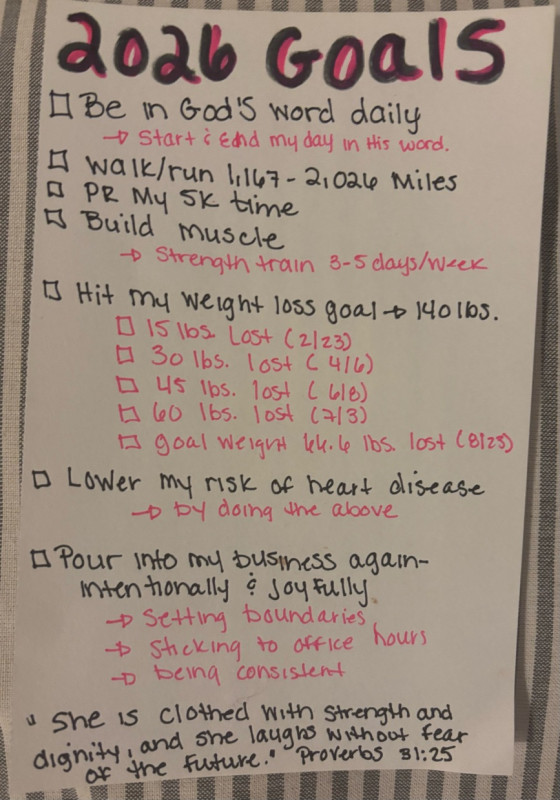 2026 Goals
□ Be in God's word daily
→ Start & End my day in His word.
□ Walk/run 1,167 - 2,026 Miles
□ PR My 5K time
□ Build muscle
→ Strength train 3-5 days/week
□ Hit my weight loss goal → 140 lbs.
□ 15 lbs. Lost (2/23)
□ 30 lbs. lost (4/6)
□ 45 lbs. lost (6/8)
□ 60 lbs. lost (7/3)
□ goal weight 66.6 lbs. lost (8/25)
□ Lower my risk of heart disease
→ by doing the above
□ Pour into my business again-
intentionally & joyfully
→ Setting boundaries
→ Sticking to office hours
→ being consistent
"She is clothed with strength and
dignity, and she laughs without fear
of the future." Proverbs 31:25